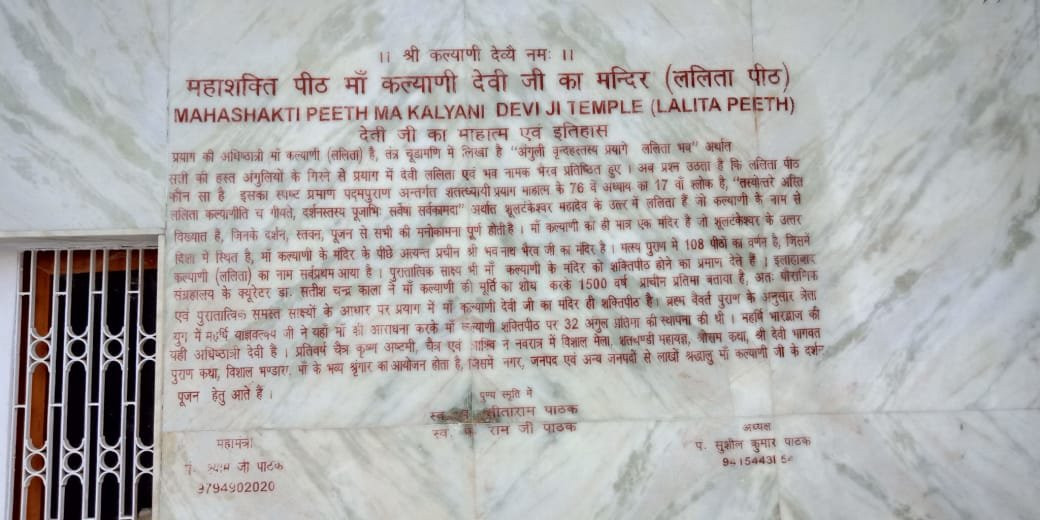 ।। श्री कल्याणी देव्यै नमः ।।
महाशक्ति पीठ माँ कल्याणी देवी जी का मन्दिर (ललिता पीठ)
MAHASHAKTI PEETH MA KALYANI DEVI JI TEMPLE (LALITA PEETH)
देवी जी का माहात्म एवं इतिहास
प्रयाग की अधिष्ठात्री माँ कल्याणी (ललिता) है, तंत्र चूडामणि में लिखा है "अंगुली वृन्दहस्तस्य प्रयागे ललिता भव" अर्थात
सती की हस्त अंगुलियों के गिरने से प्रयाग में देवी ललिता एवं भव नामक भैरव प्रतिष्ठित हुए । अब प्रश्न उठता है कि ललिता पीठ
कौन सा है इसका स्पष्ट प्रमाण पदमपुराण अन्तर्गत शताध्यायी प्रयाग माहात्म के 76 वें अध्याय का 17 वाँ श्लोक है, "तस्योत्तरे अस्ति
ललिता कल्याणीति च गीयते, दर्शनस्तस्य पूजाभिः सर्वेषा सर्वकामदा" अर्थात शूलटंकेश्वर महादेव के उत्तर में ललिता हैं जो कल्याणी के नाम से
विख्यात हैं, जिनके दर्शन, स्तवन, पूजन से सभी की मनोकामना पूर्ण होती है । माँ कल्याणी का ही मात्र एक मंदिर है जो शूलटंकेश्वर के उत्तर
दिशा में स्थित है, माँ कल्याणी के मंदिर के पीछे अत्यन्त प्रचीन श्री भवनाथ भैरव जी का मंदिर है । मत्स्य पुराण में 108 पीठों का वर्णन है, जिसमें
कल्याणी (ललिता) का नाम सर्वप्रथम आया है । पुरातात्विक साक्ष्य भी माँ कल्याणी के मंदिर को शक्तिपीठ होने का प्रमाण देते हैं । इलाहाबाद
संग्रहालय के क्यूरेटर डा. सतीश चन्द्र काला ने माँ कल्याणी की मूर्ति का शोध करके 1500 वर्ष प्राचीन प्रतिमा बताया है, अतः पौराणिक
एवं पुरातात्विक समस्त साक्ष्यों के आधार पर प्रयाग में माँ कल्याणी देवी जी का मंदिर ही शक्तिपीठ है । ब्रह्म वैवर्त पुराण के अनुसार त्रेता
युग में महर्षि याज्ञवल्क्य जी ने यहाँ माँ की आराधना करके माँ कल्याणी शक्तिपीठ पर 32 अंगुल प्रतिमा की स्थापना की थी । महर्षि भारद्वाज की
यही अधिष्ठात्री देवी है । प्रतिवर्ष चैत्र कृष्ण अष्टमी, चैत्र एवं आश्विन नवरात्र में विशाल मेला, शतचण्डी महायज्ञ, श्रीराम कथा, श्री देवी भागवत
पुराण कथा, विशाल भण्डारा, माँ के भव्य श्रृंगार का आयोजन होता है, जिसमें नगर, जनपद एवं अन्य जनपदों से लाखों श्रद्धालु माँ कल्याणी जी के दर्शन
पूजन हेतु आते हैं ।
पुण्य स्मृति में
स्व. सीताराम पाठक
स्व. राम जी पाठक
महामंत्री
श्याम जी पाठक
9794902020
अध्यक्ष
पं. सुशील कुमार पाठक